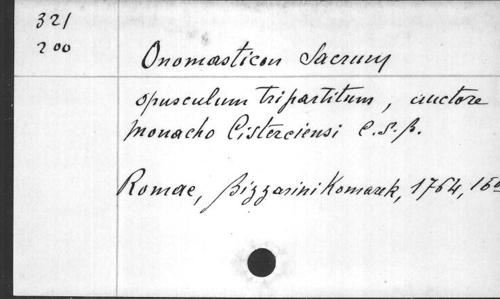 321
200
Onomasticon Sacrum
opusculum tripartitum, auctore
Monacho Cisterciensi C.S.B.
Romae, Bizzarini Komarek, 1764, 16o